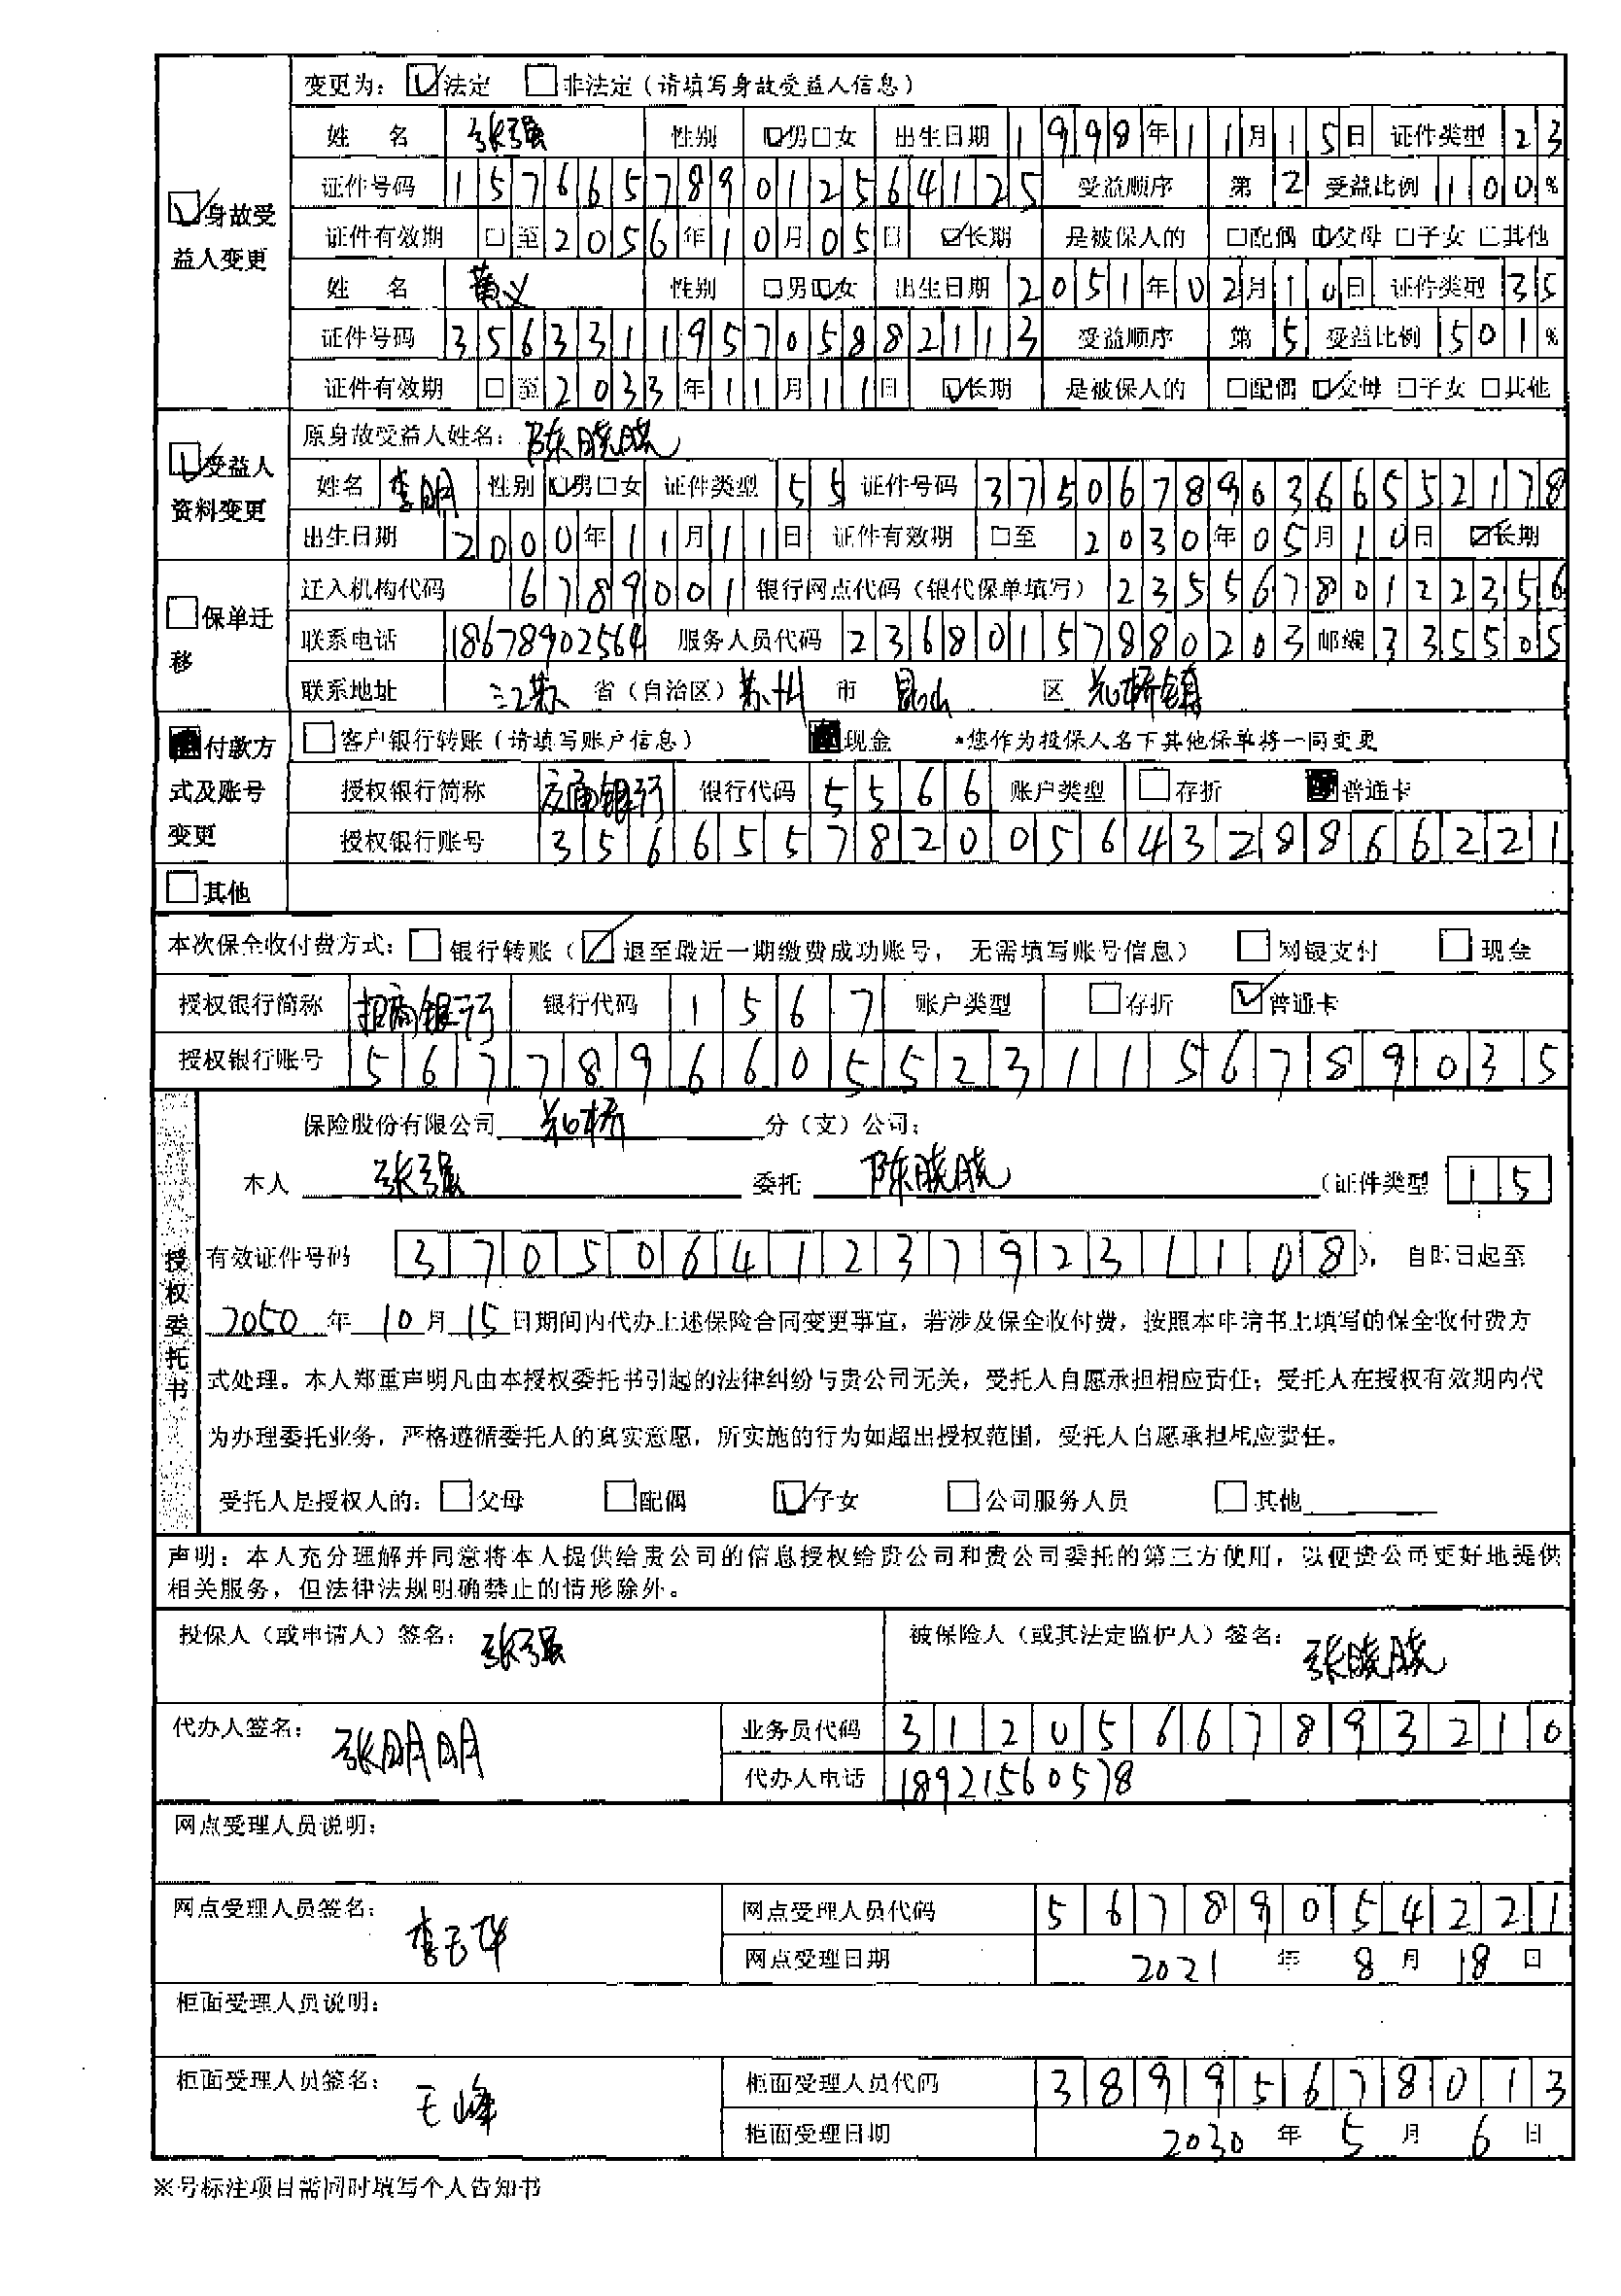 变更为： ☑法定 □非法定（请填写身故受益人信息）
☑身故受益人变更
姓 名 张强 性别 ☑男□女 出生日期 1998年11月15日 证件类型 23
证件号码 157665789012564125 受益顺序 第2 受益比例 100%
证件有效期 □至2056年10月05日 ☑长期 是被保人的 □配偶 ☑父母 □子女 □其他
姓 名 黄义 性别 □男☑女 出生日期 2051年02月10日 证件类型 35
证件号码 356331195705882113 受益顺序 第5 受益比例 501%
证件有效期 □至2033年11月11日 ☑长期 是被保人的 □配偶 ☑父母 □子女 □其他
☑受益人资料变更
原身故受益人姓名： 陈晓晓
姓名 李明 性别 ☑男□女 证件类型 55 证件号码 375067890366552178
出生日期 2000年11月11日 证件有效期 □至 2030年05月10日 ☑长期
□保单迁移
迁入机构代码 6789001 银行网点代码（银代保单填写） 23556780122356
联系电话 18678902564 服务人员代码 23680157880203 邮编 335505
联系地址 江苏 省（自治区） 苏州 市 昆山 区 花桥镇
■付款方式及账号变更
□客户银行转账（请填写账户信息） ■现金 *您作为投保人名下其他保单将一同变更
授权银行简称 交通银行 银行代码 5566 账户类型 □存折 ■普通卡
授权银行账号 35665578200564328866221
□其他
本次保全收付费方式： □银行转账（☑退至最近一期缴费成功账号， 无需填写账号信息） □网银支付 □现金
授权银行简称 招商银行 银行代码 1567 账户类型 □存折 ☑普通卡
授权银行账号 56778966055231156789035
授权委托书
保险股份有限公司 花桥 分（支）公司：
本人 张强 委托 陈晓晓 （证件类型 15
有效证件号码 370506412379231108）， 自即日起至
2050 年 10 月 15 日期间内代办上述保险合同变更事宜，若涉及保全收付费，按照本申请书上填写的保全收付费方
式处理。本人郑重声明凡由本授权委托书引起的法律纠纷与贵公司无关，受托人自愿承担相应责任；受托人在授权有效期内代
为办理委托业务，严格遵循委托人的真实意愿，所实施的行为如超出授权范围，受托人自愿承担相应责任。
受托人是授权人的： □父母 □配偶 ☑子女 □公司服务人员 □其他
声明：本人充分理解并同意将本人提供给贵公司的信息授权给贵公司和贵公司委托的第三方使用，以便贵公司更好地提供
相关服务，但法律法规明确禁止的情形除外。
投保人（或申请人）签名： 张强 被保险人（或其法定监护人）签名： 张晓晓
代办人签名： 张明明 业务员代码 31205667893210
代办人电话 18921560578
网点受理人员说明：
网点受理人员签名： 李玉华 网点受理人员代码 56789054221
网点受理日期 2021 年 8 月 18 日
柜面受理人员说明：
柜面受理人员签名： 王峰 柜面受理人员代码 38995678013
柜面受理日期 2030 年 5 月 6 日
※号标注项目需同时填写个人告知书